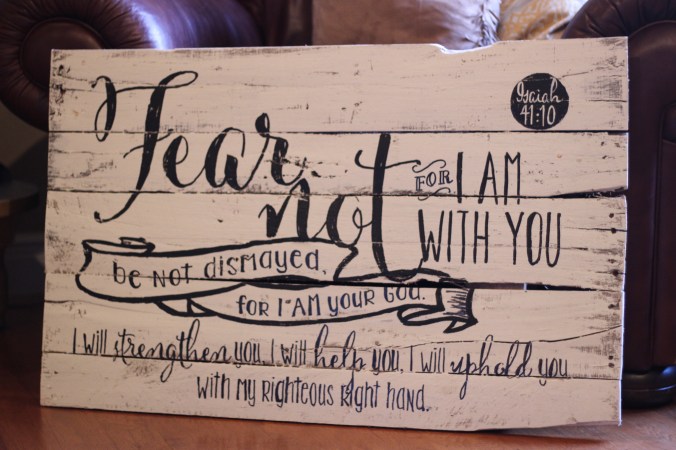 Isaiah
41:10
Fear
not
FOR I AM
WITH YOU
be NOT dismayed,
for I AM your God.
I will strengthen you, I will help you, I will uphold you
with my righteous right hand.